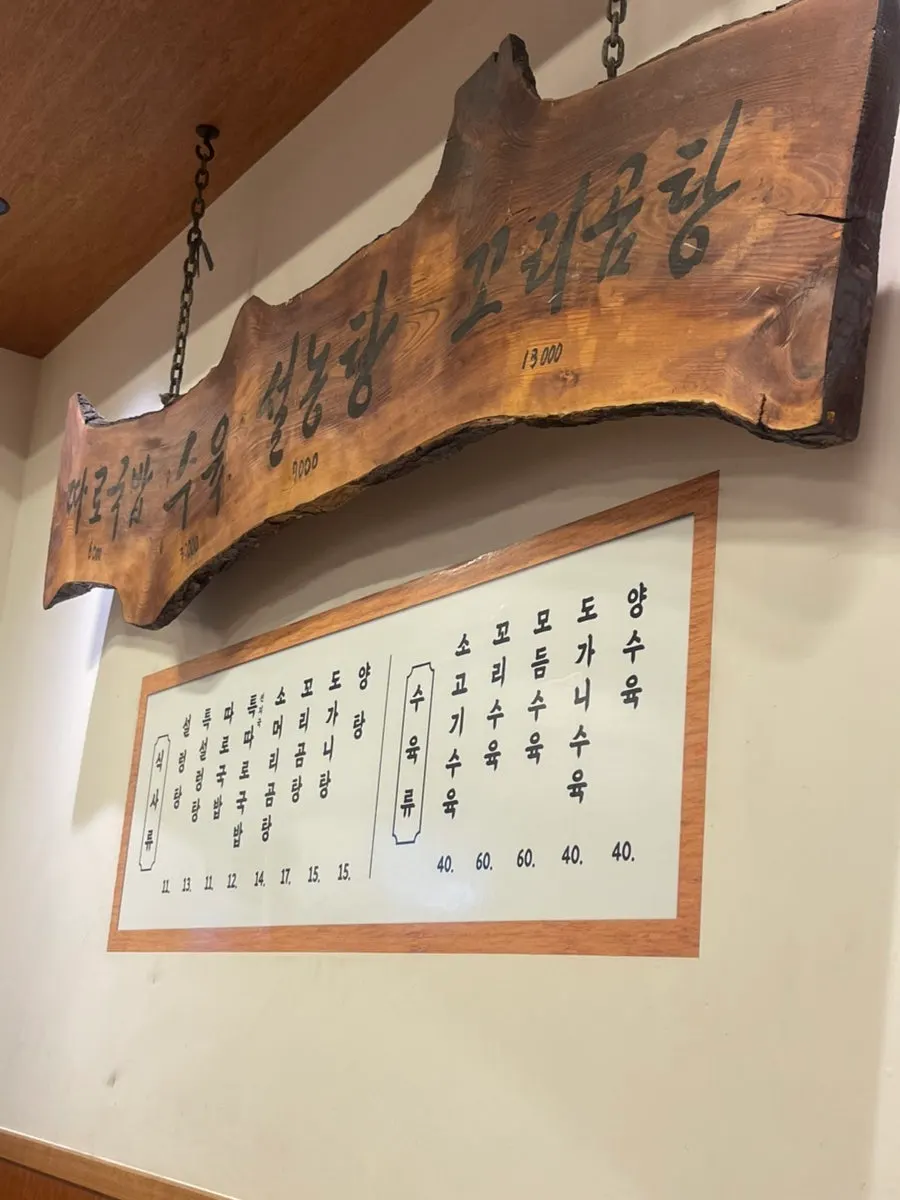 따로국밥 수육 설농탕 꼬리곰탕
7000
13000
식사류
설렁탕 11.
특설렁탕 13.
따로국밥 11.
특따로국밥 12.
소머리곰탕 14.
꼬리곰탕 17.
도가니탕 15.
양탕 15.
수육류
소고기수육 40.
꼬리수육 60.
모듬수육 60.
도가니수육 40.
양수육 40.